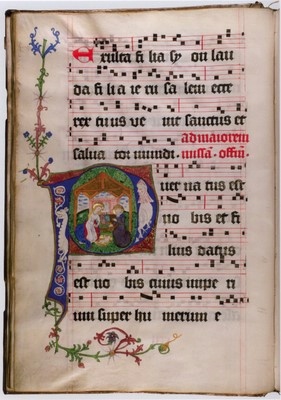 Exulta fi lia sy on lau
da fi li a ie ru sa lem ecce
rex tuus ve nit sanctus et
ad maiorem
salua tor mundi. missā. offm̄.
Puer na tus est
no bis et fi
lius datus
est no bis cuius impe ri
um super hu merum e